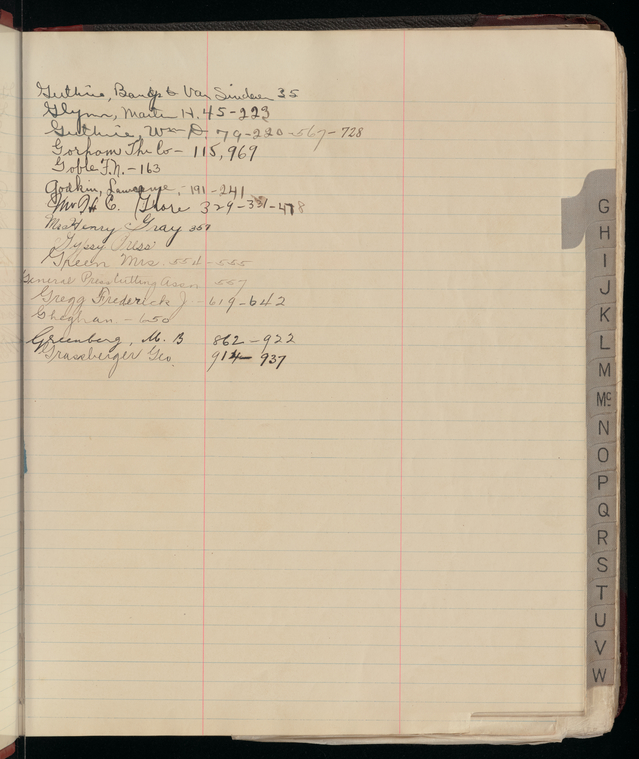 Guthrie, Bangs & Van Sinderen 35
Glynn, Martin H. 45-223
Guthrie, Wm D. 79-220-567-728
Gorham The Co- 115,969
Goble F.N. - 163
Godkin, Lawrence, - 191-241
H. E. 329-331-478
Mrs Henry Gray 351
Gypsy Press
Green Mrs. 554-555
General Press Cutting Asson 557
Gregg Frederick J. - 619-642
- 650
Greenberg, M. B 862-922
Grassberger Geo. 914-937
G
H
I
J
K
L
M
Mc
N
O
P
Q
R
S
T
U
V
W